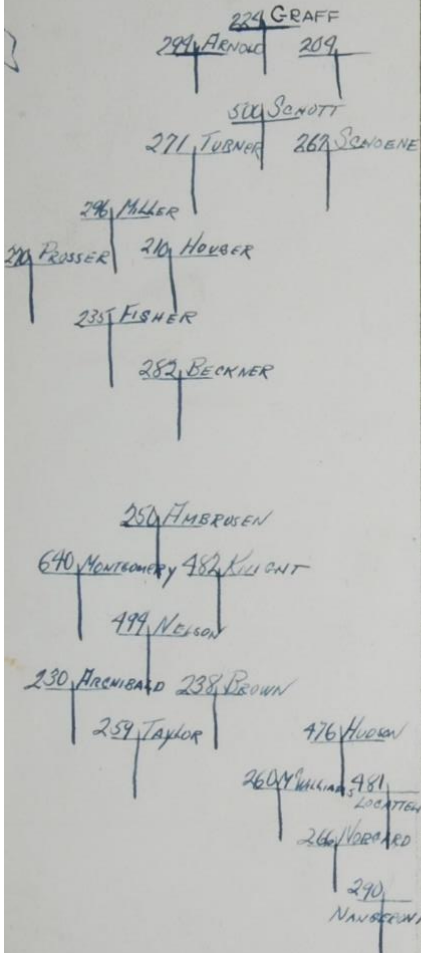 224 GRAFF
294 ARNOLD 204
500 SCHOTT
271 TURNER 267 SCHOENE
296 MILLER
PROSSER 210 HOUSER
235 FISHER
282 BECKNER
250 AMBROSEN
640 MONTGOMERY 482
499 NELSON
230 ARCHIBALD 238 BROWN
259 TAYLOR
476 HUDSON
260 McWILLIAMS 481
LOCATTEL
266
290
NANGERONI